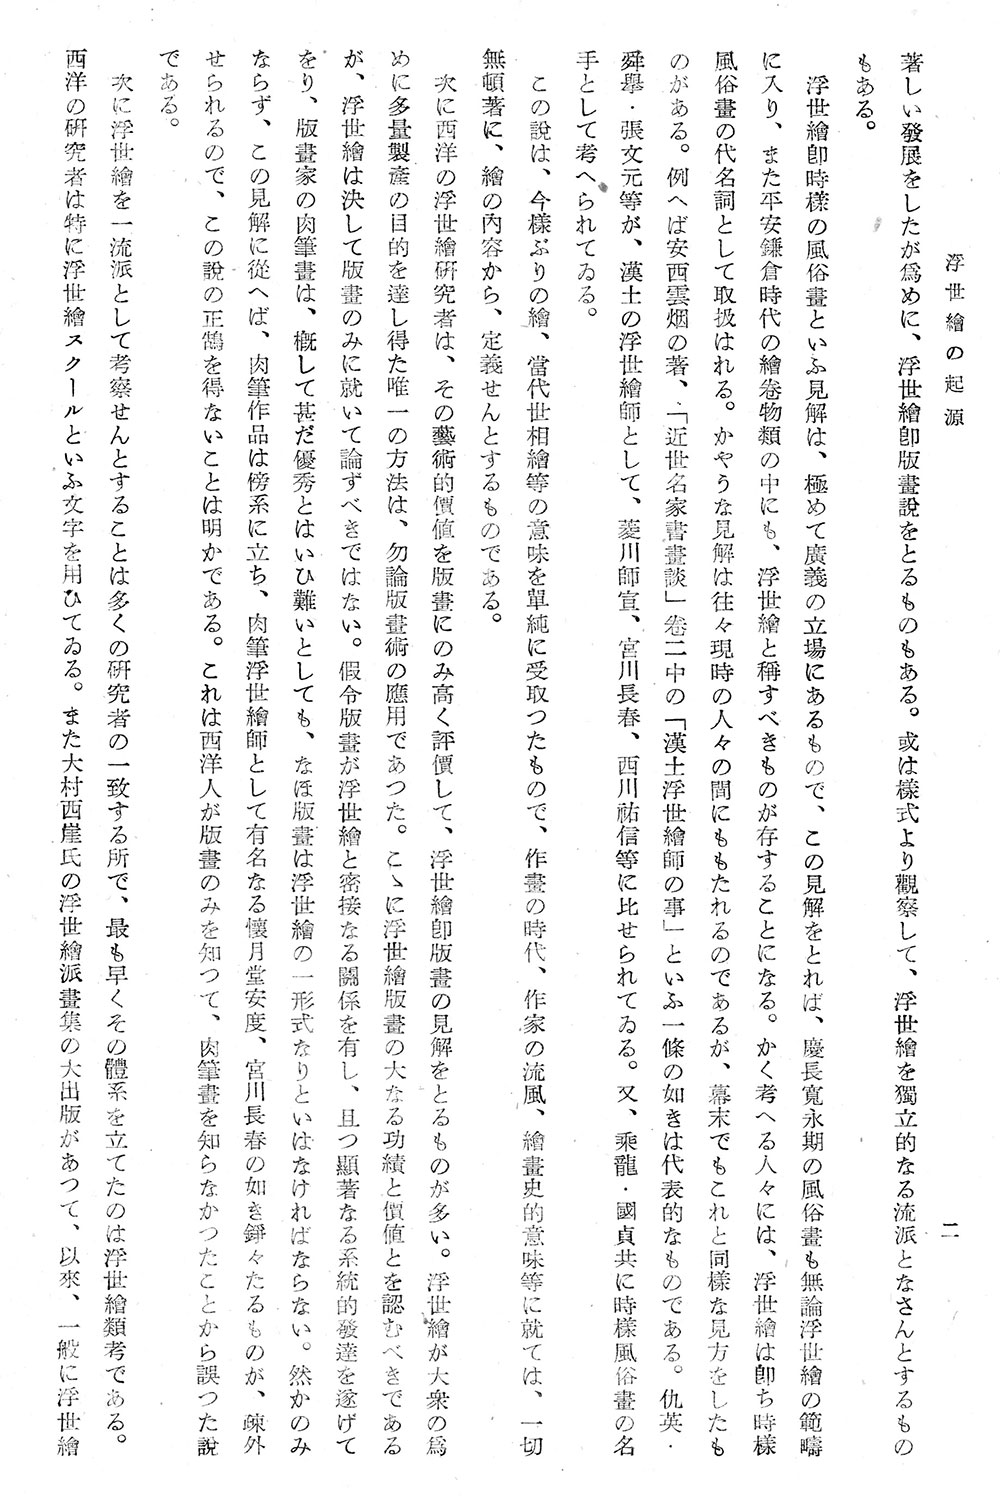 浮世繪の起源
二
著しい發展をしたが爲めに、浮世繪卽版畫說をとるものもある。或は樣式より觀察して、浮世繪を獨立的なる流派となさんとするもの
もある。
浮世繪卽時樣の風俗畫といふ見解は、極めて廣義の立場にあるもので、この見解をとれば、慶長寬永期の風俗畫も無論浮世繪の範疇
に入り、また平安鎌倉時代の繪卷物類の中にも、浮世繪と稱すべきものが存することになる。かく考へる人々には、浮世繪は卽ち時樣
風俗畫の代名詞として取扱はれる。かやうな見解は往々現時の人々の間にももたれるのであるが、幕末でもこれと同樣な見方をしたも
のがある。例へば安西雲烟の著、「近世名家書畫談」卷二中の「漢土浮世繪師の事」といふ一條の如きは代表的なものである。仇英・
舜擧・張文元等が、漢土の浮世繪師として、菱川師宣、宮川長春、西川祐信等に比せられてゐる。又、乘龍・國貞共に時樣風俗畫の名
手として考へられてゐる。
この說は、今樣ぶりの繪、當代世相繪等の意味を單純に受取つたもので、作畫の時代、作家の流風、繪畫史的意味等に就ては、一切
無頓著に、繪の內容から、定義せんとするものである。
次に西洋の浮世繪硏究者は、その藝術的價値を版畫にのみ高く評價して、浮世繪卽版畫の見解をとるものが多い。浮世繪が大衆の爲
めに多量製產の目的を達し得た唯一の方法は、勿論版畫術の應用であつた。こゝに浮世繪版畫の大なる功績と價値とを認むべきである
が、浮世繪は決して版畫のみに就いて論ずべきではない。假令版畫が浮世繪と密接なる關係を有し、且つ顯著なる系統的發達を遂げて
をり、版畫家の肉筆畫は、槪して甚だ優秀とはいひ難いとしても、なほ版畫は浮世繪の一形式なりといはなければならない。然かのみ
ならず、この見解に從へば、肉筆作品は傍系に立ち、肉筆浮世繪師として有名なる懷月堂安度、宮川長春の如き錚々たるものが、疎外
せられるので、この說の正鵠を得ないことは明かである。これは西洋人が版畫のみを知つて、肉筆畫を知らなかつたことから誤つた說
である。
次に浮世繪を一流派として考察せんとすることは多くの硏究者の一致する所で、最も早くその體系を立てたのは浮世繪類考である。
西洋の硏究者は特に浮世繪スクールといふ文字を用ひてゐる。また大村西崖氏の浮世繪派畫集の大出版があつて、以來、一般に浮世繪